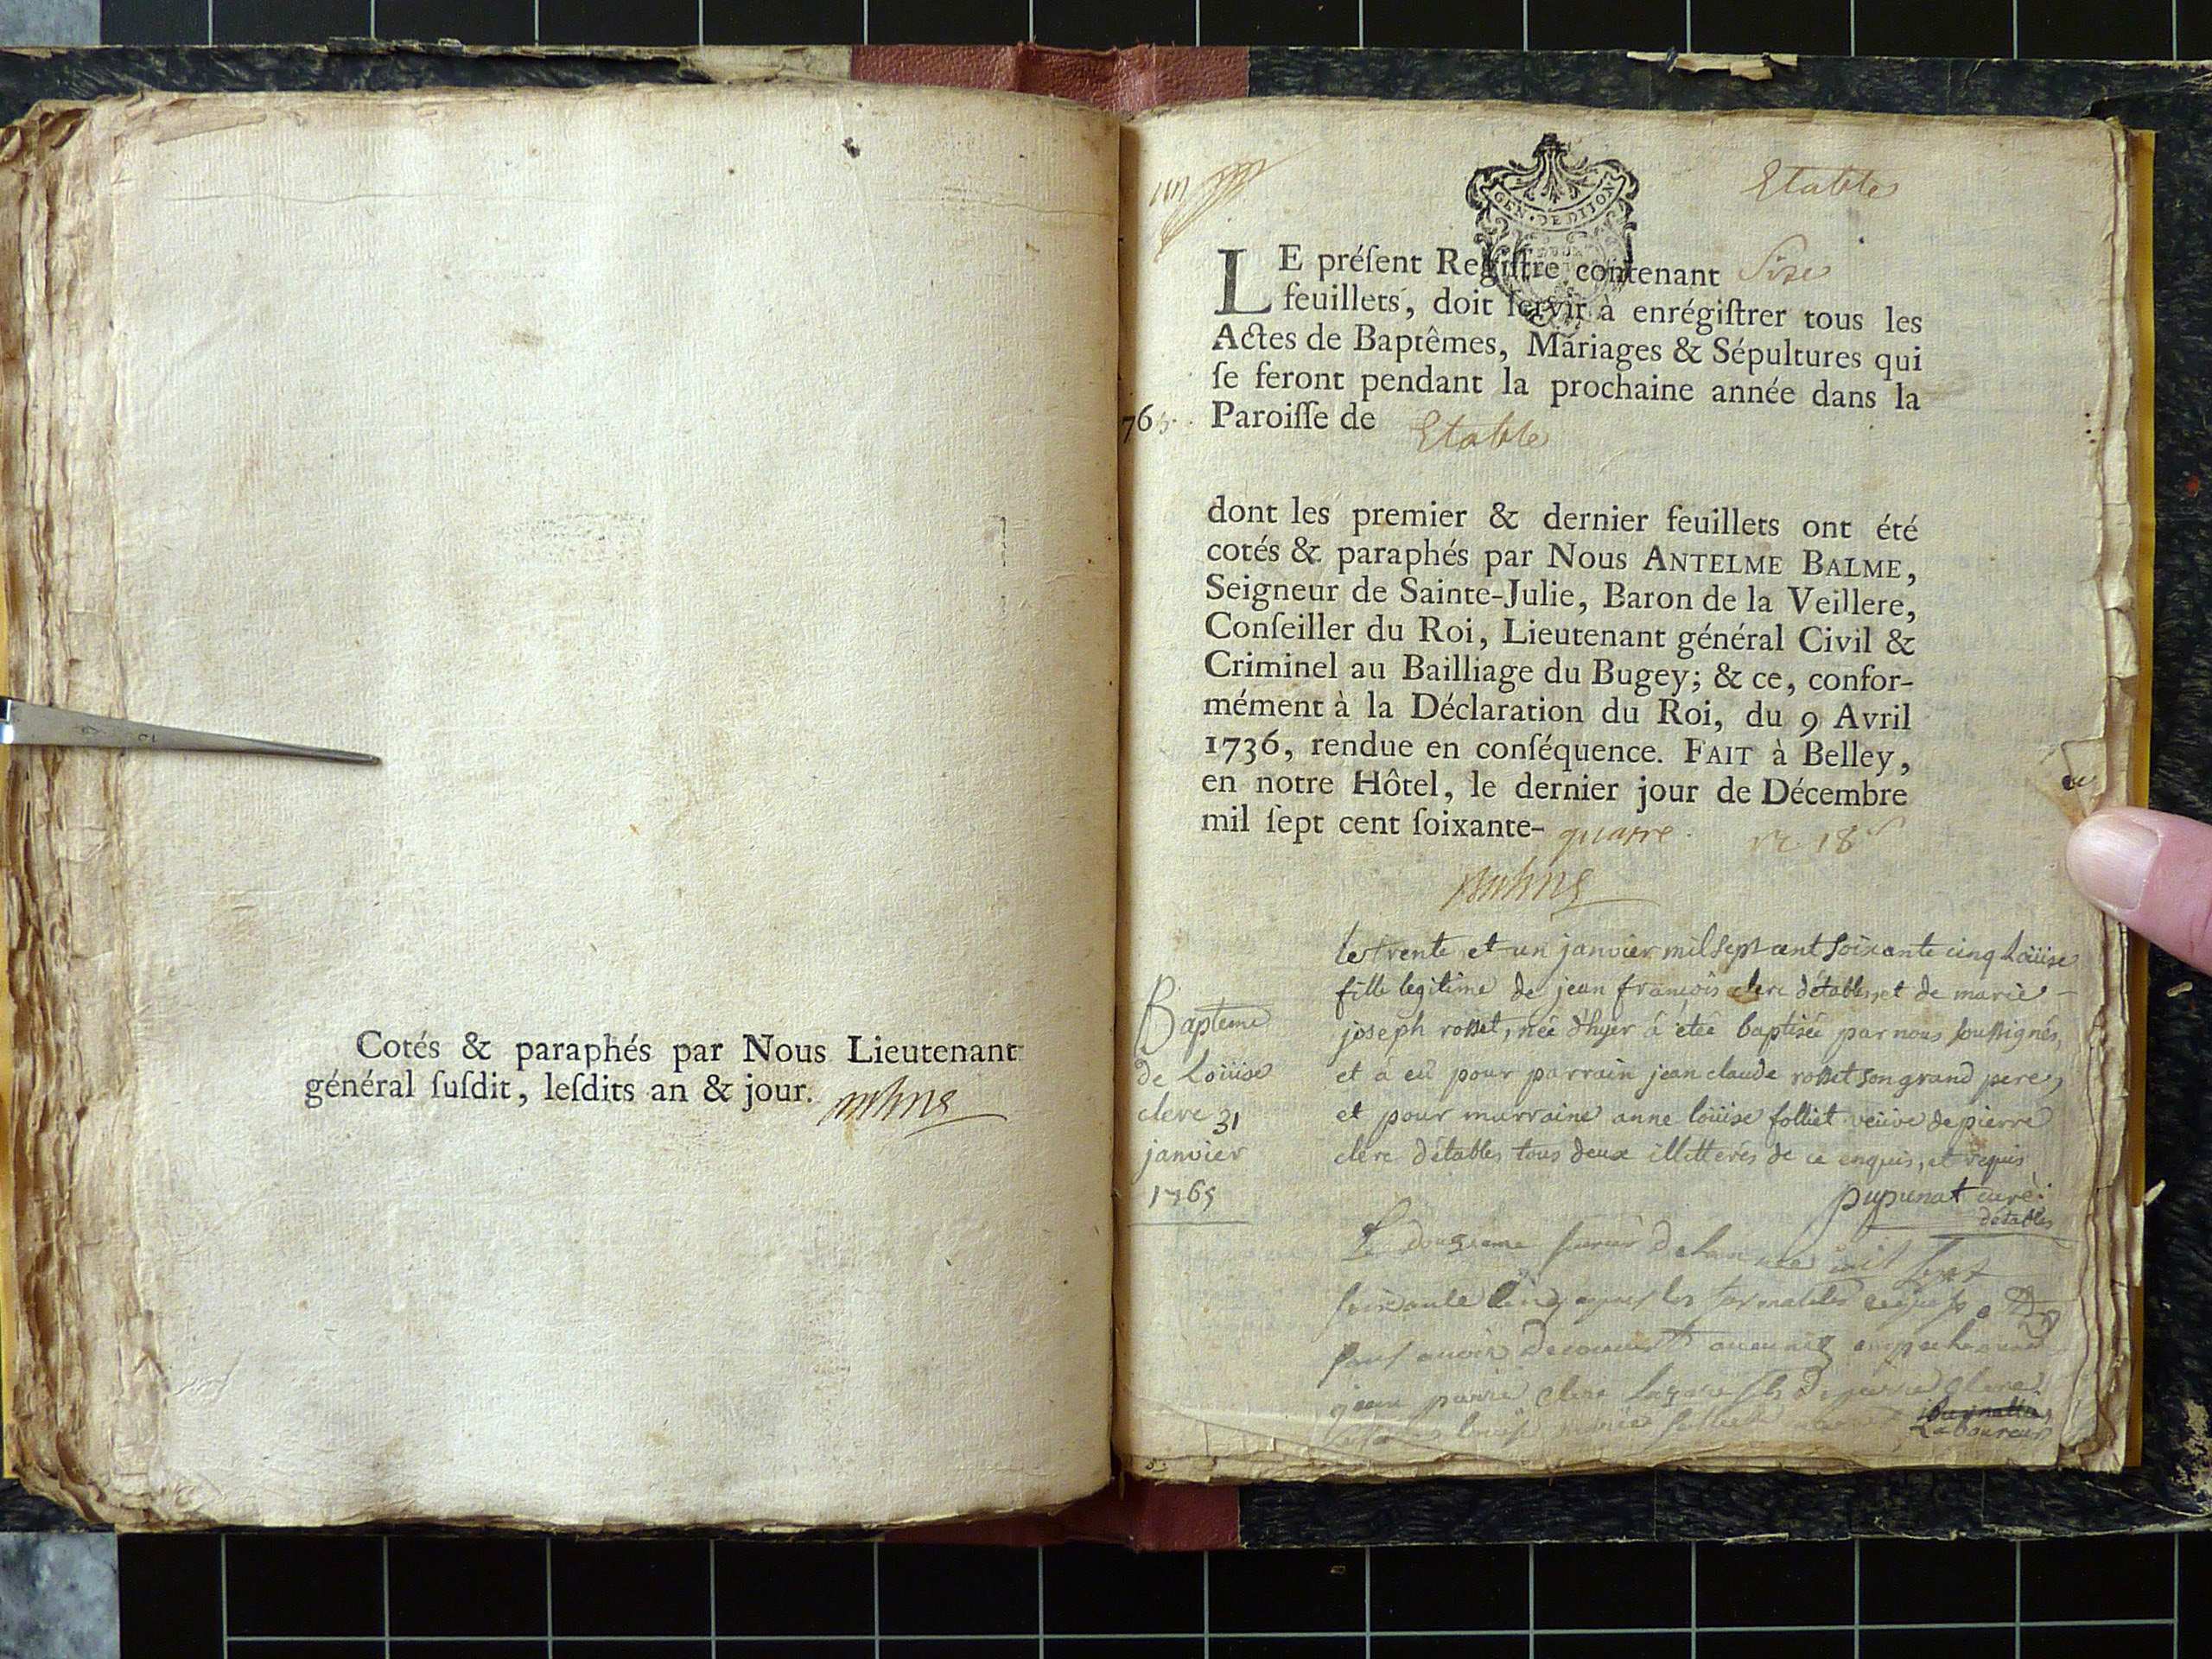 Cotés & paraphés par Nous Lieutenant
général ſuſdit, leſdits an & jour.
GEN · DE DIJON
Etable
LE préſent Regiſtre contenant Sixe
feuillets, doit ſervir à enrégiſtrer tous les
Actes de Baptêmes, Mariages & Sépultures qui
ſe feront pendant la prochaine année dans la
765. Paroiſſe de Etable
dont les premier & dernier feuillets ont été
cotés & paraphés par Nous ANTELME BALME,
Seigneur de Sainte-Julie, Baron de la Veillere,
Conſeiller du Roi, Lieutenant général Civil &
Criminel au Bailliage du Bugey; & ce, confor-
mément à la Déclaration du Roi, du 9 Avril
1736, rendue en conſéquence. FAIT à Belley,
en notre Hôtel, le dernier jour de Décembre
mil ſept cent ſoixante- quatre.
Bapteme
de Loüise
clerc 31
janvier
1765
le trente et un janvier mil sept cent soixante cinq Loüise
fille legitime de jean françois clerc détables et de marie
joseph rosset, née d'hyer à étée baptisée par nous soussignés,
et à eü pour parrain jean claude rosset son grand pere,
et pour marraine anne loüise folliet veüve de pierre
clerc détables tous deux illitterés de ce enquis, et requis
pupunat curé
détables
Le douzieme fevrier de l'année mil sept
soixante cinq apres les formalités
sans avoir decouvert aucuns empechement
jean pierre clerc fils de pierre clerc
Laboureur